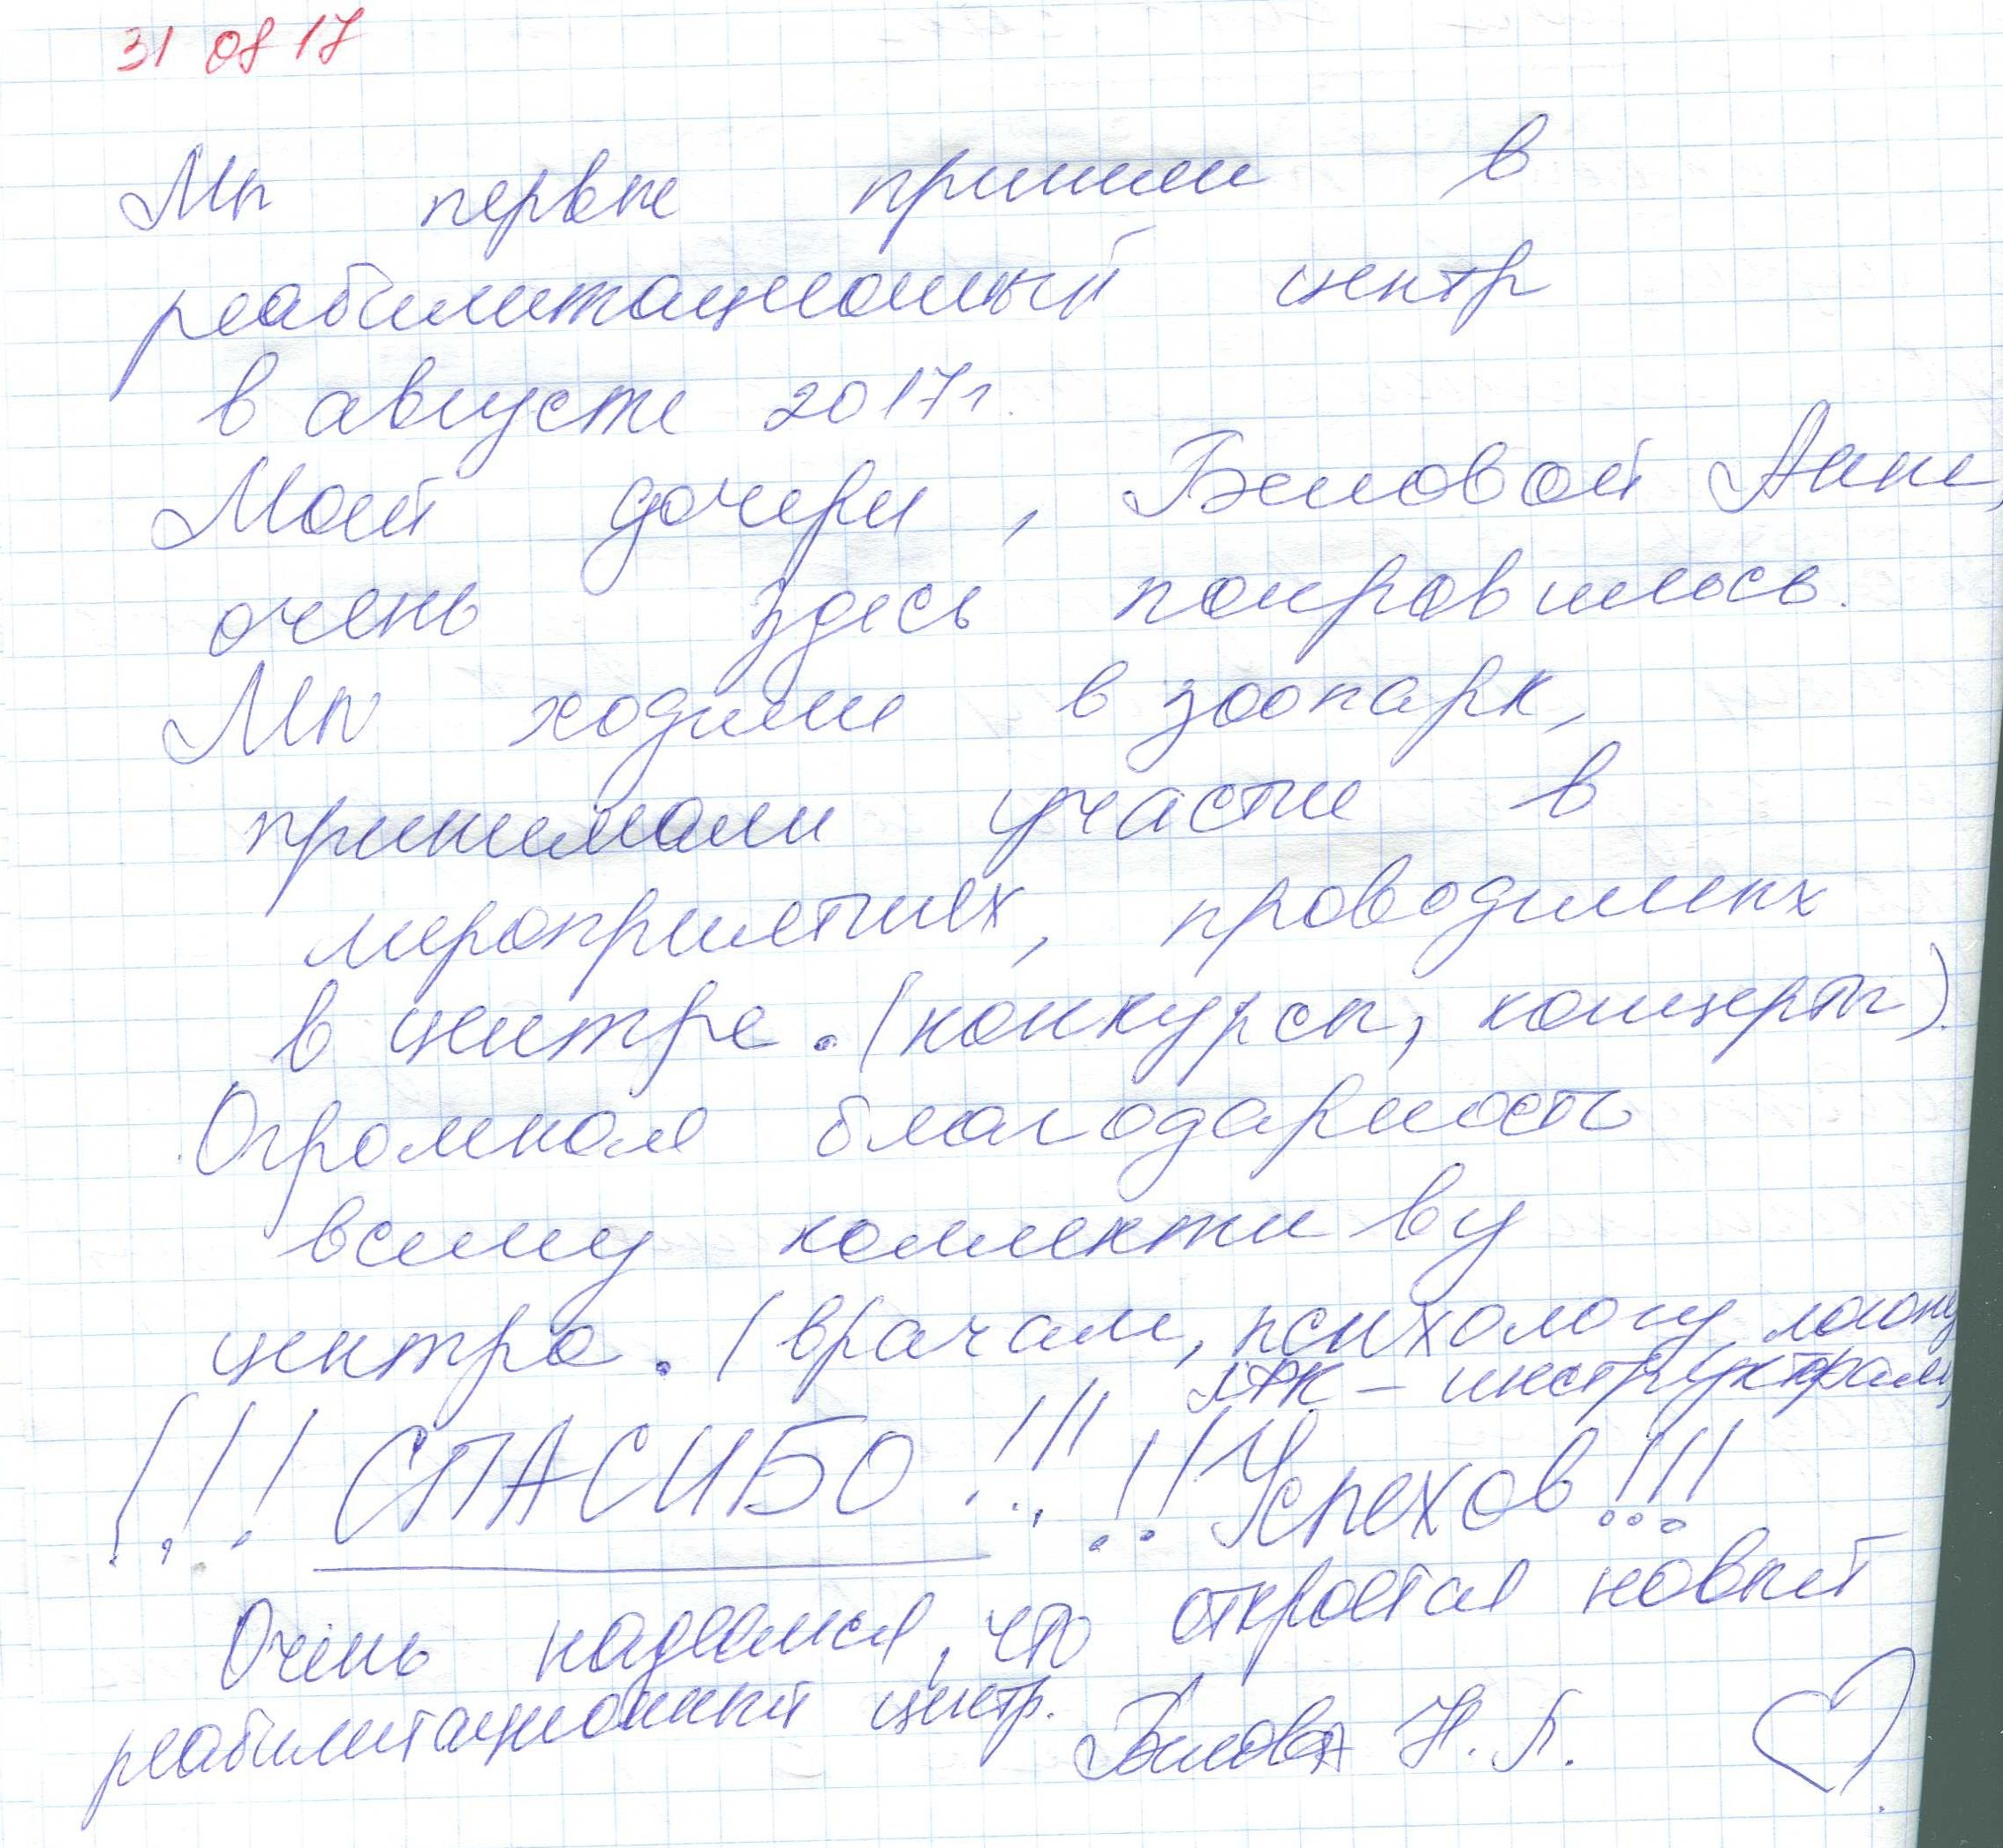 31 08 17
Мы первые пришли в
реабилитационный центр
в августе 2017г.
Моей дочери, Беловой Анне,
очень здесь понравилось.
Мы ходили в зоопарк,
принимали участие в
мероприятиях, проводимых
в центре. (конкурсы, концерты).
Огромная благодарность
всему коллективу
центра. (врачам, психологу,
ЛФК - инструкторам,
!!! СПАСИБО !!! !! Успехов !!!
Очень надеемся, что откроется новый
реабилитационный центр. Белова Н. П.